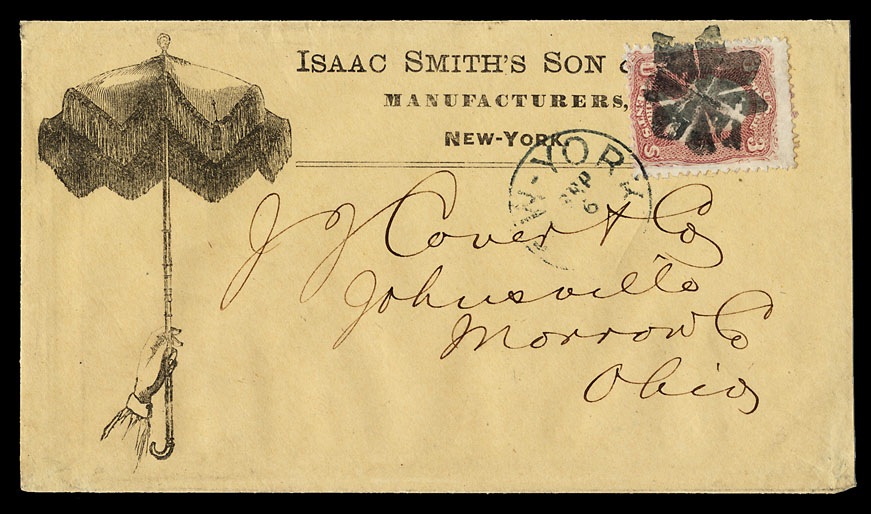 ISAAC SMITH'S SON &
MANUFACTURERS,
NEW-YORK.
W-YORK
SEP
6
J J Cover & Co
Johnsville
Morrow Co
Ohio
3
S